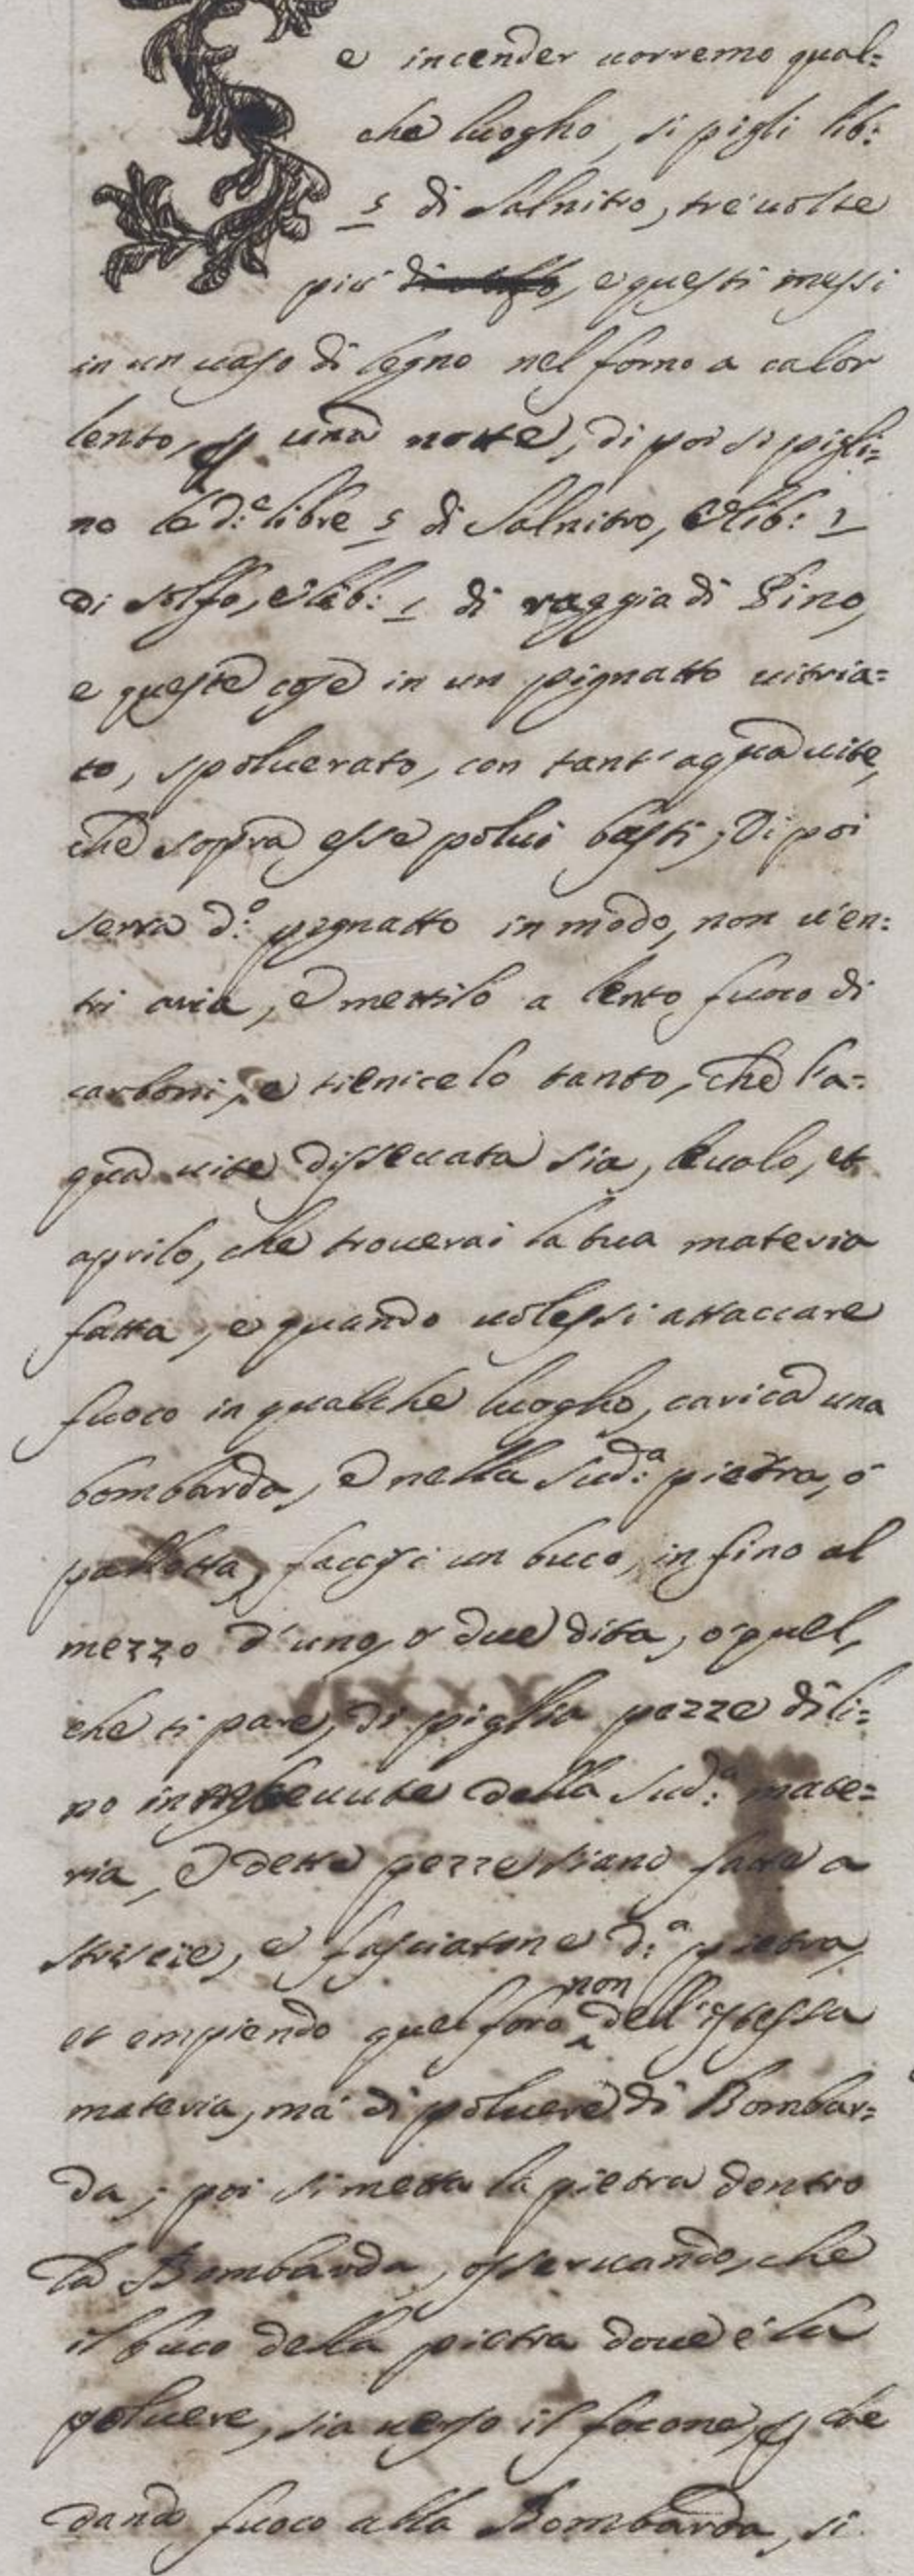 Se incender uorremo qual=
che luogho, si pigli lib:
5 di Salnitro, tre uolte
più, e questi messi
in un uaso di legno nel forno a calor
lento, p una notte, di poi si pigli=
no le d:e libre 5 di Salnitro, e lib: 1
di solfo, e lib: 1 di raggia di Pino,
e queste cose in un pignatto uitria=
to, spoluerato, con tant'aqua uite,
che sopra esse polui basti; Di poi
serra d:o pignatto in modo, non u'en=
tri aria, e mettilo a lento fuoco di
carboni, e tienicelo tanto, che l'a=
qua uite disseccata sia, leualo, et
aprilo, che trouerai la tua materia
fatta, e quando uolessi attaccare
fuoco in qualche luogho, carica una
bombarda, e nella sud:a pietra, ò
pallotta, faccisi un buco, in fino al
mezzo d'uno, o due dita, o quel,
che ti pare, di piglia pezze di li=
no della sud:a mate=
ria, e dette pezze siano fatte a
striscie, e fasciatone d:a pietra,
et empiendo quel foro non dell'istessa
materia, mà di poluere di Bombar=
da; poi si metta la pietra dentro
la Bombarda, osseruando, che
il buco della pietra doue è la
poluere, sia uerso il focone, p che
dando fuoco alla Bombarda, si